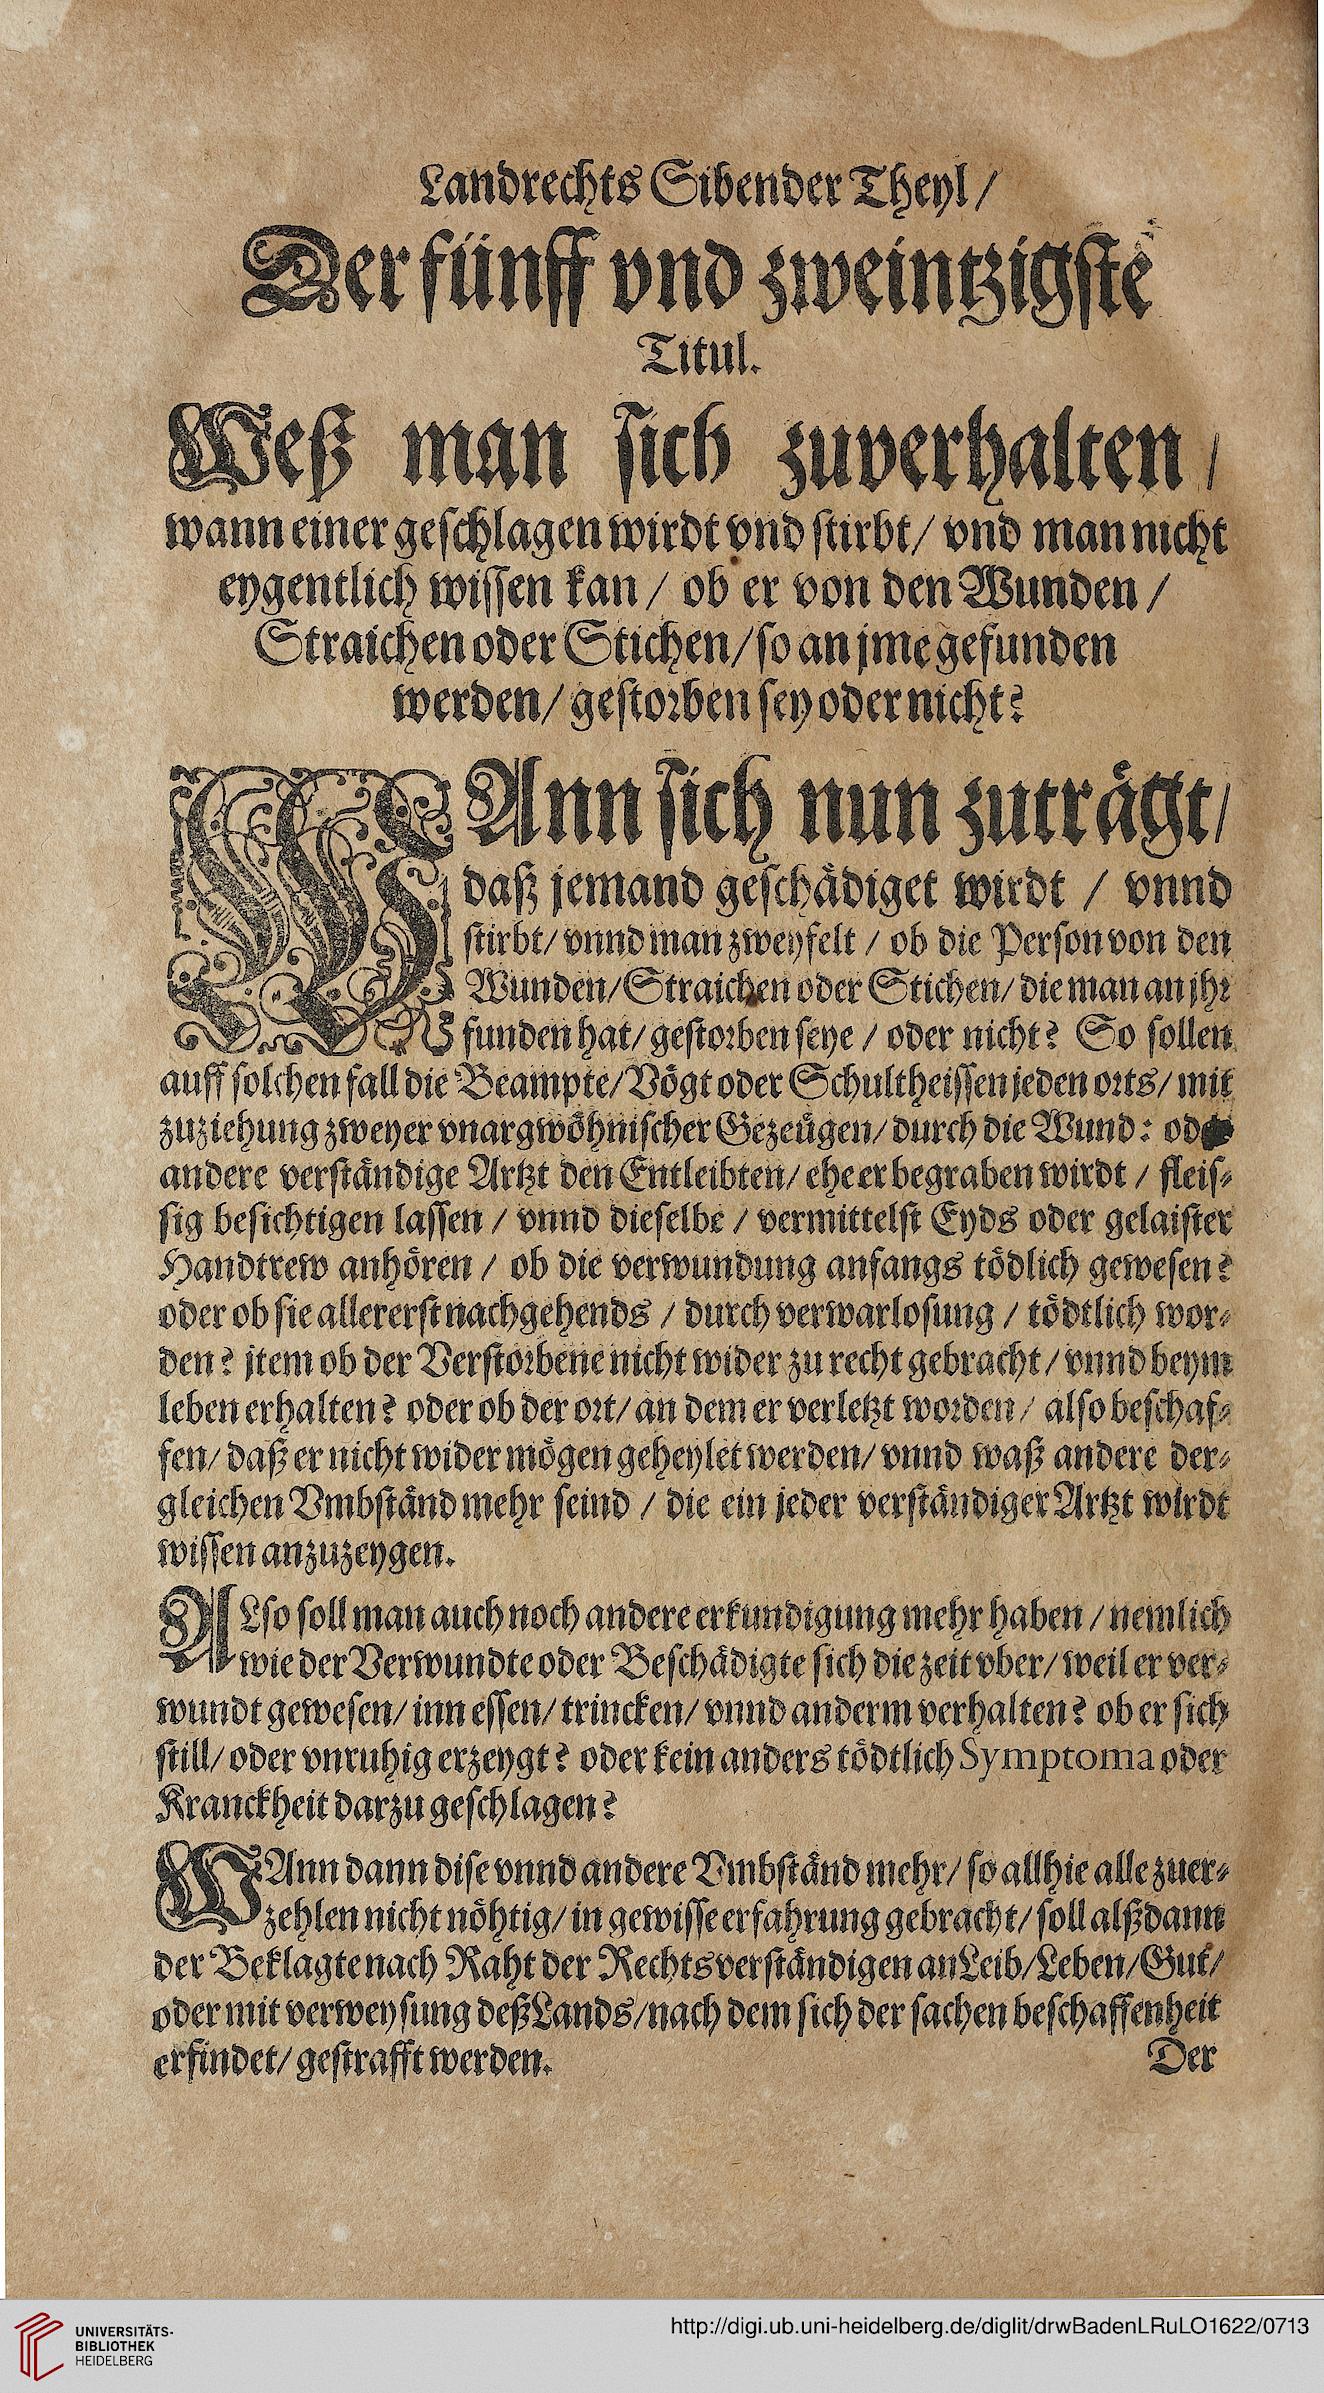 Landrechts Sibender Theyl /
Der fünff vnd zweintzigste
Titul.
Weß man sich zuverhalten /
wann einer geschlagen wirdt vnd stirbt / vnd man nicht
eygentlich wissen kan / ob er von den Wunden /
Straichen oder Stichen / so an jme gefunden
werden / gestorben sey oder nicht?
WAnn sich nun zuträgt /
daß jemand geschädiget wirdt / vnnd
stirbt / vnnd man zweyfelt / ob die Person von den
Wunden / Straichen oder Stichen / die man an jhr
funden hat / gestorben seye / oder nicht? So sollen
auff solchen fall die Beampte / Vögt oder Schultheissen jeden orts / mit
zuziehung zweyer vnargwöhnischer Gezeügen / durch die Wund: oder
andere verständige Artzt den Entleibten / ehe er begraben wirdt / fleis-
sig besichtigen lassen / vnnd dieselbe / vermittelst Eyds oder gelaister
Handtrew anhören / ob die verwundung anfangs tödlich gewesen?
oder ob sie allererst nachgehends / durch verwarlosung / tödtlich wor-
den? jtem ob der Verstorbene nicht wider zu recht gebracht / vnnd beym
leben erhalten? oder ob der ort / an dem er verletzt worden / also beschaf-
fen / daß er nicht wider mögen geheylet werden / vnnd waß andere der-
gleichen Vmbständ mehr seind / die ein jeder verständiger Artzt wirdt
wissen anzuzeygen.
ALso soll man auch noch andere erkundigung mehr haben / nemlich
wie der Verwundte oder Beschädigte sich die zeit vber / weil er ver-
wundt gewesen / inn essen / trincken / vnnd anderm verhalten? ob er sich
still / oder vnruhig erzeygt? oder kein anders tödtlich Symptoma oder
Kranckheit darzu geschlagen?
WAnn dann dise vnnd andere Vmbständ mehr / so allhie alle zuer-
zehlen nicht nöhtig / in gewisse erfahrung gebracht / soll alßdann
der Beklagte nach Raht der Rechtsverständigen an Leib / Leben / Gut /
oder mit verweysung deß Lands / nach dem sich der sachen beschaffenheit
erfindet / gestrafft werden. Der
UNIVERSITÄTS-
BIBLIOTHEK
HEIDELBERG
http://digi.ub.uni-heidelberg.de/diglit/drwBadenLRuLO1622/0713